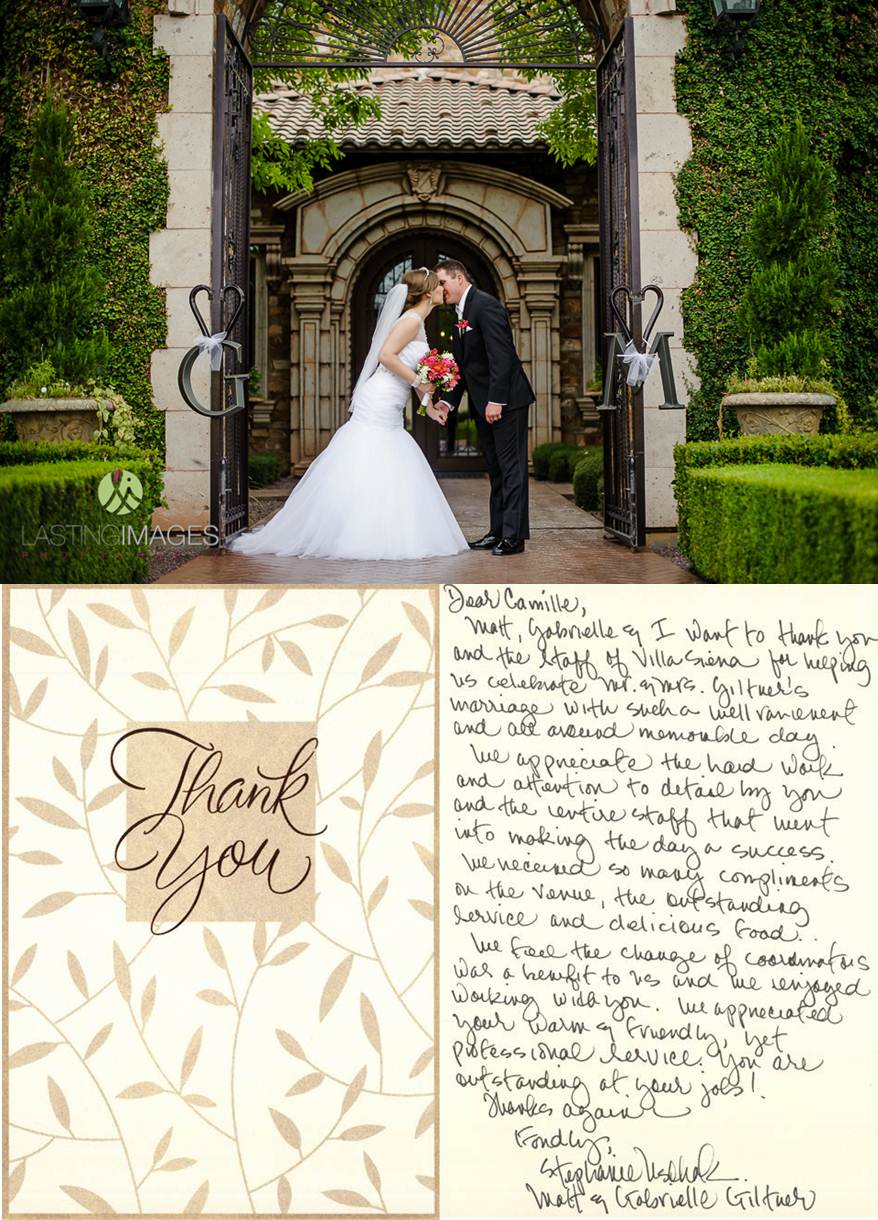 G M
LASTINGIMAGES
Thank
You
Dear Camille,
Matt, Gabrielle & I want to thank you
and the staff of Villa Siena for helping
us celebrate Mr. & Mrs. Giltner's
marriage with such a well run event
and all around memorable day.
We appreciate the hard work
and attention to detail by you
and the entire staff that went
into making the day a success.
We received so many compliments
on the venue, the outstanding
service and delicious food..
We feel the change of coordinators
was a benefit to us and we enjoyed
working with you. We appreciated
your warm & friendly, yet
professional service. You are
outstanding at your jobs!
Thanks again
Fondly,
Stephanie
Matt & Gabrielle Giltner